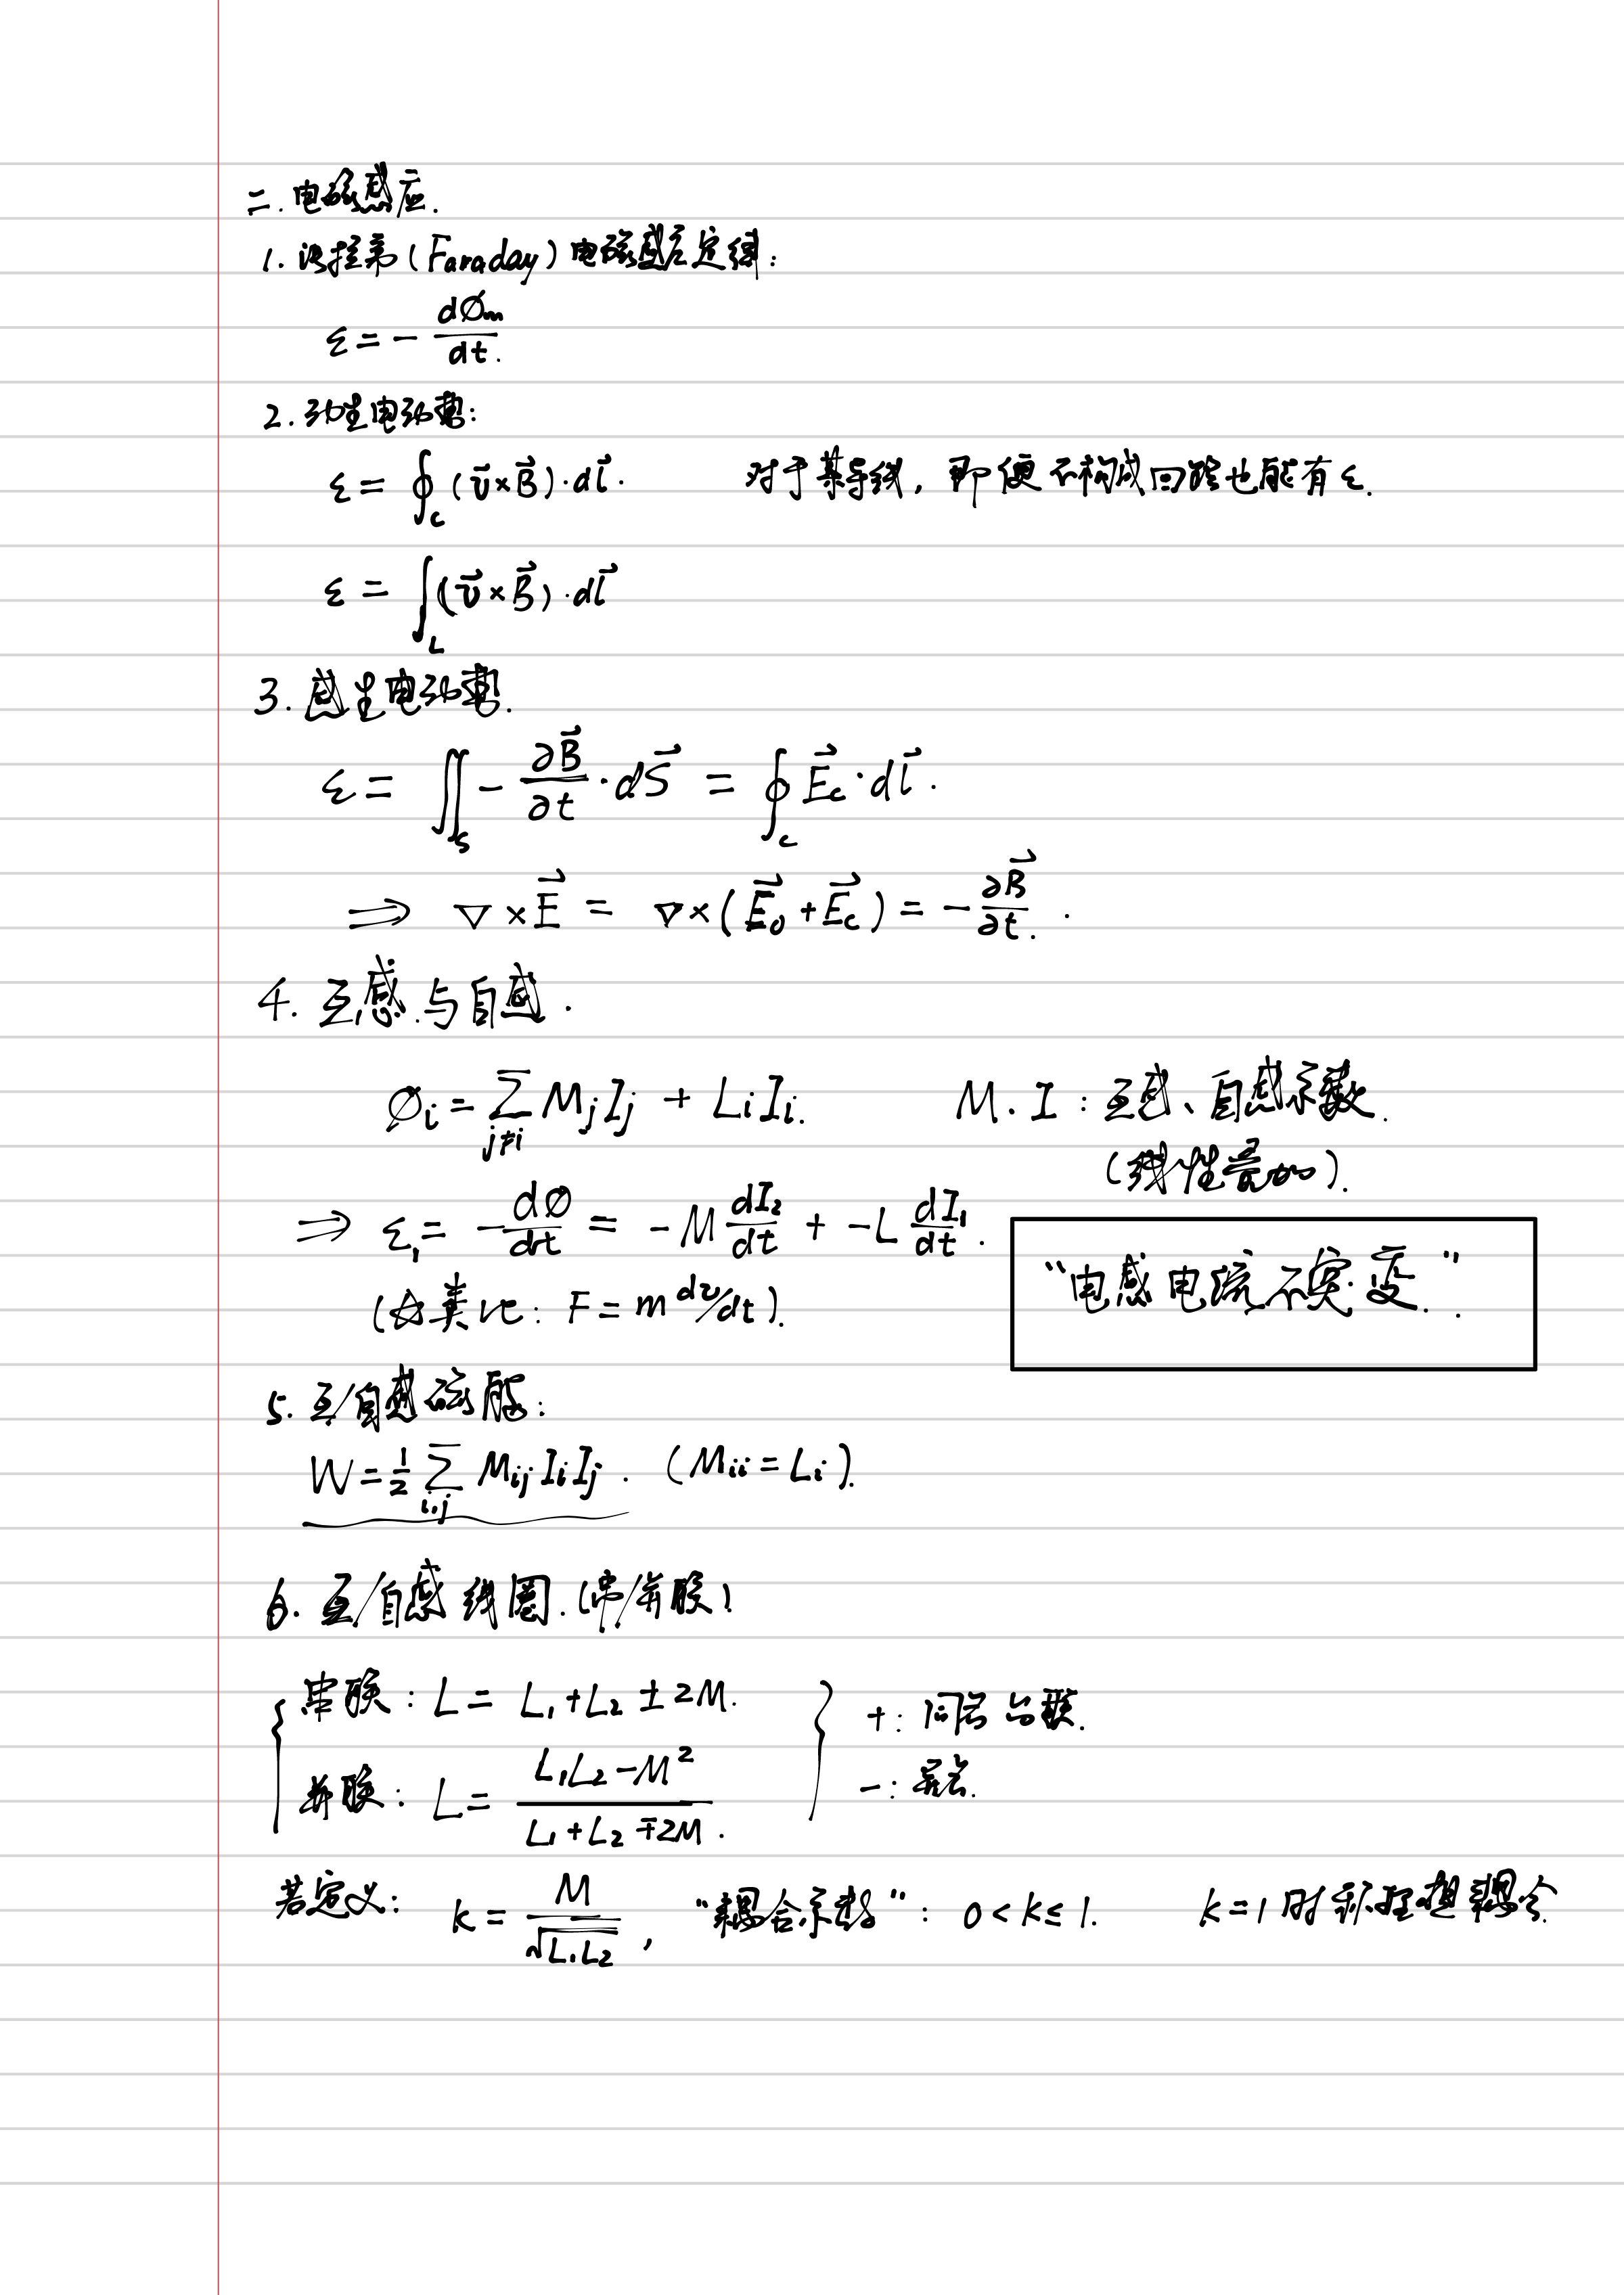 二. 电磁感应.
1. 法拉第 (Faraday) 电磁感应定律:
ε = - dØm/dt.
2. 动生电动势:
ε = ∮_C (v⃗×B⃗)·dl⃗. 对于某导线, 即便不构成回路也能有 ε.
ε = ∫_L (v⃗×B⃗)·dl⃗
3. 感生电动势.
ε = ∬_S - ∂B⃗/∂t · dS⃗ = ∮_C E⃗c·dl⃗.
⇒ ∇×E⃗ = ∇×(E⃗0 + E⃗c) = - ∂B⃗/∂t.
4. 互感与自感.
Øi = ∑_{j≠i} Mj Ij + Li Ii. M. I : 互感、自感系数.
(线性叠加).
⇒ ε1 = - dØ/dt = -M dI2/dt + -L dI1/dt.
“电感电流不突变.”.
(类比: F = m dv/dt).
5. 互/自感磁能:
W = 1/2 ∑_{i,j} Mij Ii Ij. (Mii = Li).
6. 互/自感线圈. (串/并联)
串联: L = L1 + L2 ± 2M. +: 同名台联.
并联: L = (L1L2 - M²)/(L1 + L2 ∓ 2M). -: 异名.
若定义: k = M/√(L1L2), “耦合系数”: 0 < k ≤ 1. k = 1 时称理想耦合